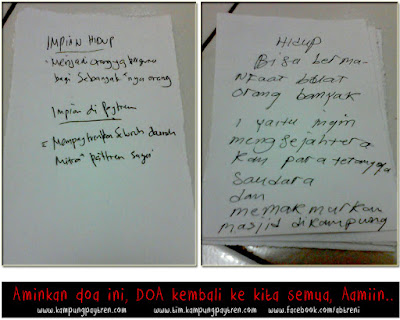 IMPIAN HIDUP
- Menjadi orang yg berguna
bagi Sebanyak"nya orang
Impian di Paytren
= Mempaytrenkan Seluruh daerah
Mitra" paytren saya
Hidup
Bisa berma-
NFaat buat
orang banyak
1 yaitu ingin
mengsejahtera
kan para tetangga
Saudara
dan
memakmurkan
masjid dikampung
Aminkan doa ini, DOA kembali ke kita semua, Aamiin..
www.kampungpaytren.com www.tim.kampungpaytren.com www.facebook.com/abtreni